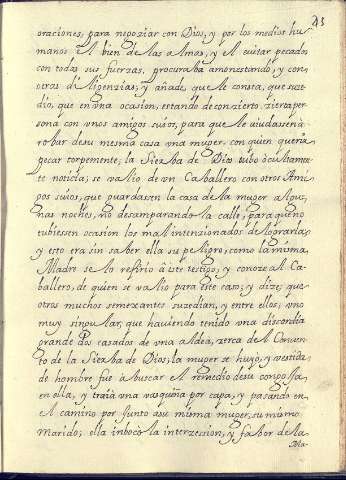 43
oraciones, para negoziar con Dios, y por los medios hu-
manos el bien de las almas, y el euitar pecados
con todas sus fuerzas, procuraba amonestando, y con
otras diligenzias; y añade, que le consta, que suze-
dio, que en vna ocasion, estando de conzierto zierta per
sona con vnos amigos suios, para que le aiudasen a
robar de su mesma casa vna muger con quien queria
pecar torpemente, la Sierba de Dios tubo ocultamen-
te noticia, se valio de vn Caballero con otros Ami-
gos suios, que guardasen la casa de la muger algu-
nas noches, no desamparando la calle, para que no
tubiessen ocasion los mal intenzionados de lograrla,
y esto era sin saber ella su peligro, como la misma
Madre se lo refirio a este testigo, y conoze al Ca-
ballero, de quien se valio para este caso; y dize, que
otros muchos semexantes suzedian, y entre ellos, vno
muy singular, que hauiendo tenido vna discordia
grande dos casados de vna aldea, zerca del Conuen
to de la Sierba de Dios, la muger se huyo, y vestida
de hombre fue a buscar el remedio de su congoxa
en ella, y traia vna vasquiña por capa, y pasando en
el camino por junto a su misma muger, su mismo
Marido; ella inboco la interzession, y fabor de la
Ma-